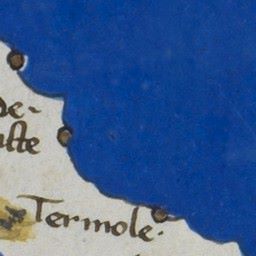 de-
aste
Termole.